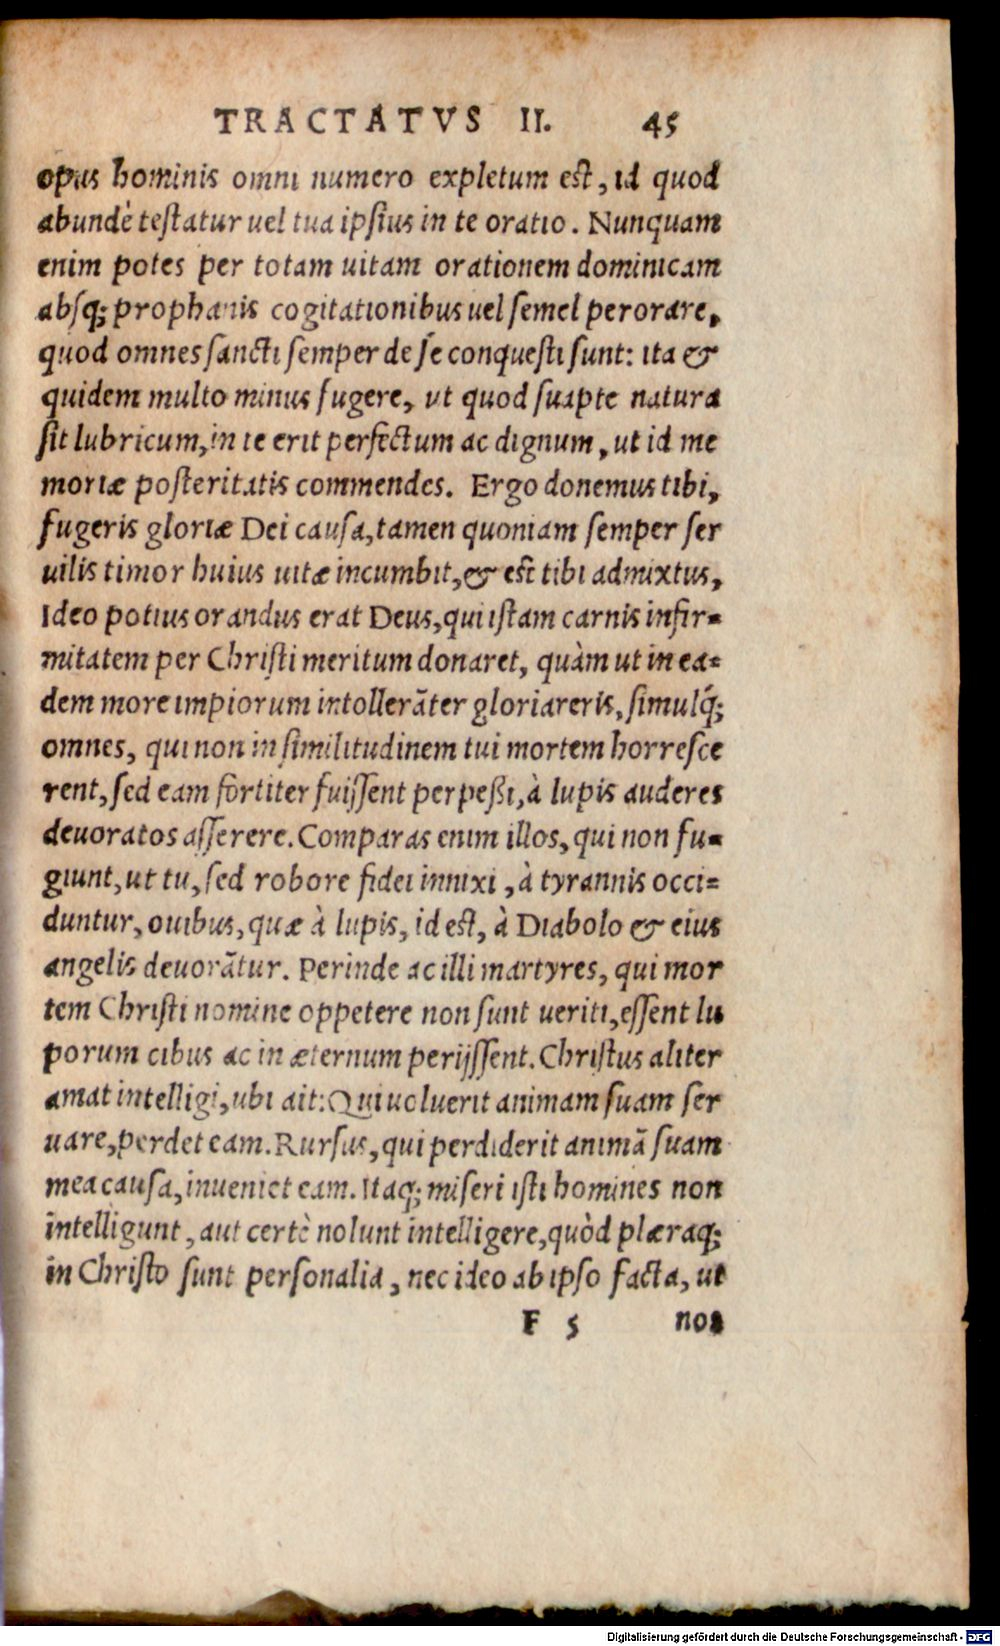 TRACTATVS II. 45
opus hominis omni numero expletum est, id quod
abundè testatur uel tua ipsius in te oratio. Nunquam
enim potes per totam uitam orationem dominicam
absq; prophanis cogitationibus uel semel perorare,
quod omnes sancti semper de se conquesti sunt: ita &
quidem multo minus fugere, ut quod suapte natura
sit lubricum, in te erit perfectum ac dignum, ut id me
moriæ posteritatis commendes. Ergo donemus tibi,
fugeris gloriæ Dei causa, tamen quoniam semper ser
uilis timor huius uitæ incumbit, & est tibi admixtus,
Ideo potius orandus erat Deus, qui istam carnis infir-
mitatem per Christi meritum donaret, quàm ut in ea-
dem more impiorum intollerāter gloriareris, simulq́;
omnes, qui non in similitudinem tui mortem horresce
rent, sed eam fortiter fuissent perpeßi, à lupis auderes
deuoratos asserere. Comparas enim illos, qui non fu-
giunt, ut tu, sed robore fidei innixi, à tyrannis occi-
duntur, ouibus, quæ à lupis, id est, à Diabolo & eius
angelis deuorātur. Perinde ac illi martyres, qui mor
tem Christi nomine oppetere non sunt ueriti, essent lu
porum cibus ac in æternum perijssent. Christus aliter
amat intelligi, ubi ait: Qui uoluerit animam suam ser
uare, perdet eam. Rursus, qui perdiderit animā suam
mea causa, inueniet eam. Itaq; miseri isti homines non
intelligunt, aut certè nolunt intelligere, quòd plæraq;
in Christo sunt personalia, nec ideo ab ipso facta, ut
F 5 nos
Digitalisierung gefördert durch die Deutsche Forschungsgemeinschaft - DFG